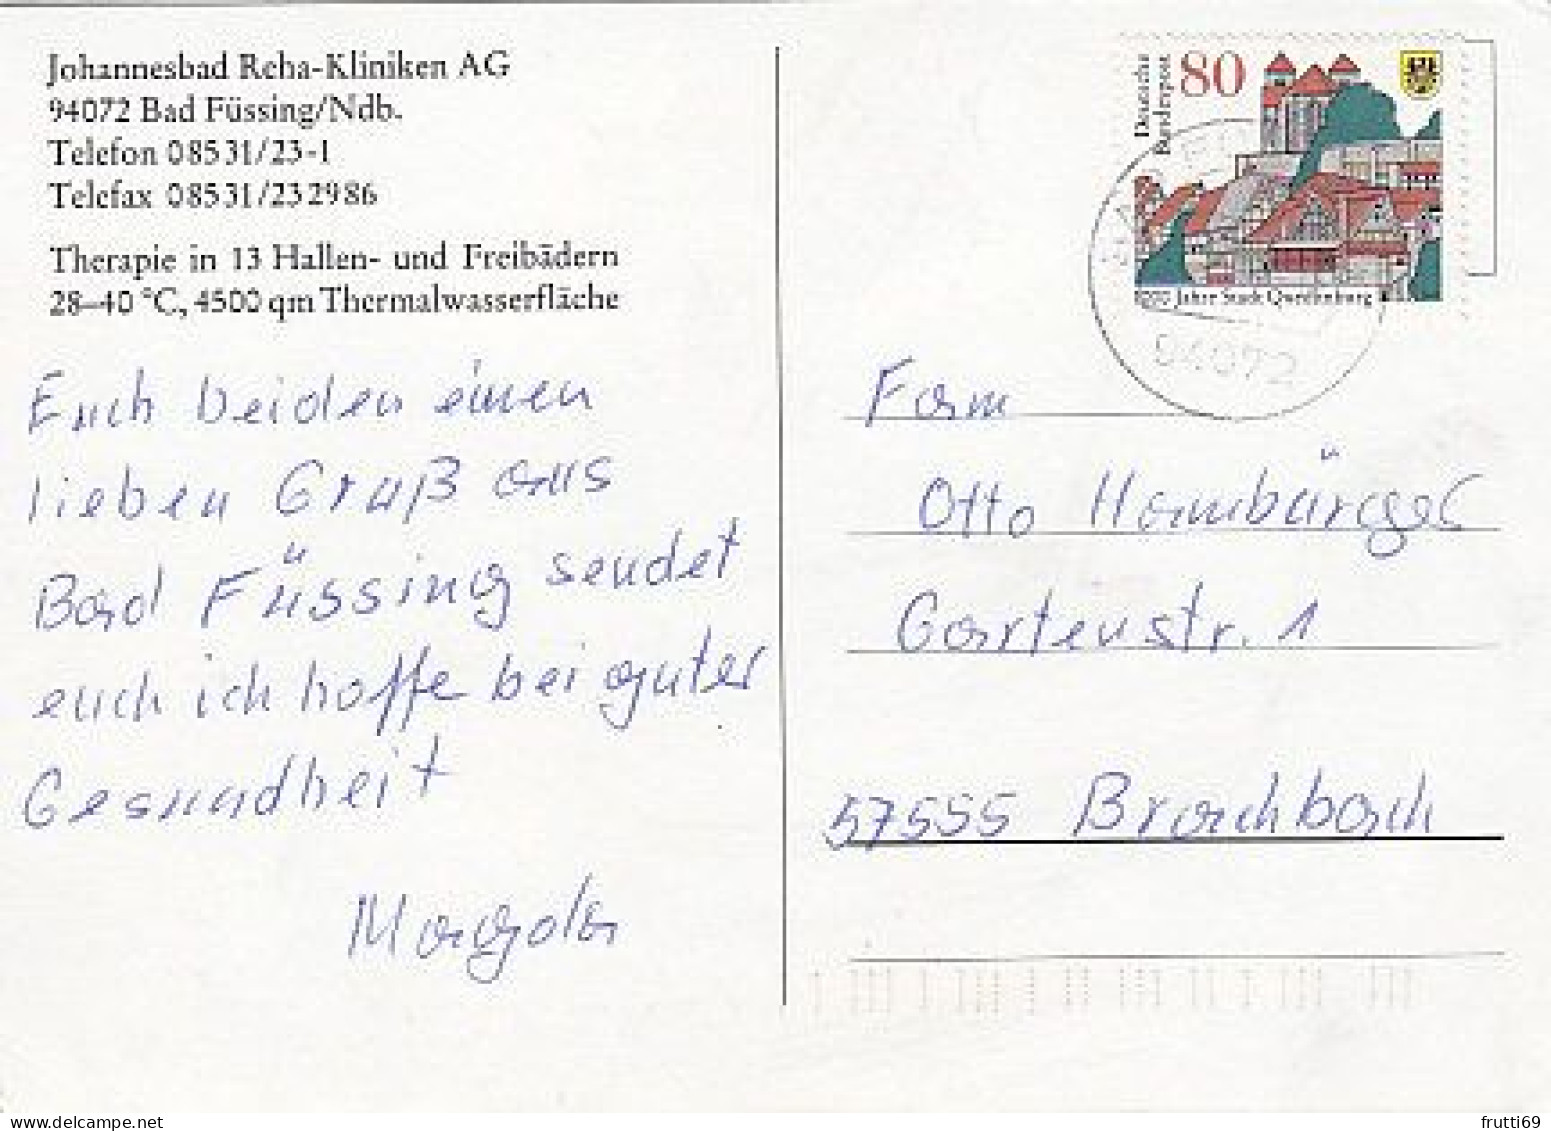 Johannesbad Reha-Kliniken AG
94072 Bad Füssing/Ndb.
Telefon 08531/23-1
Telefax 08531/232986
Therapie in 13 Hallen- und Freibädern
28–40 °C, 4500 qm Thermalwasserfläche
Euch beiden einen
lieben Gruß aus
Bad Füssing sendet
euch ich hoffe bei guter
Gesundheit
Magda
Deutsche
Bundespost
80
1000 Jahre Stadt Quedlinburg
94072
Fam
Otto Hambürger
Gartenstr. 1
57555 Brachbach
frutti69